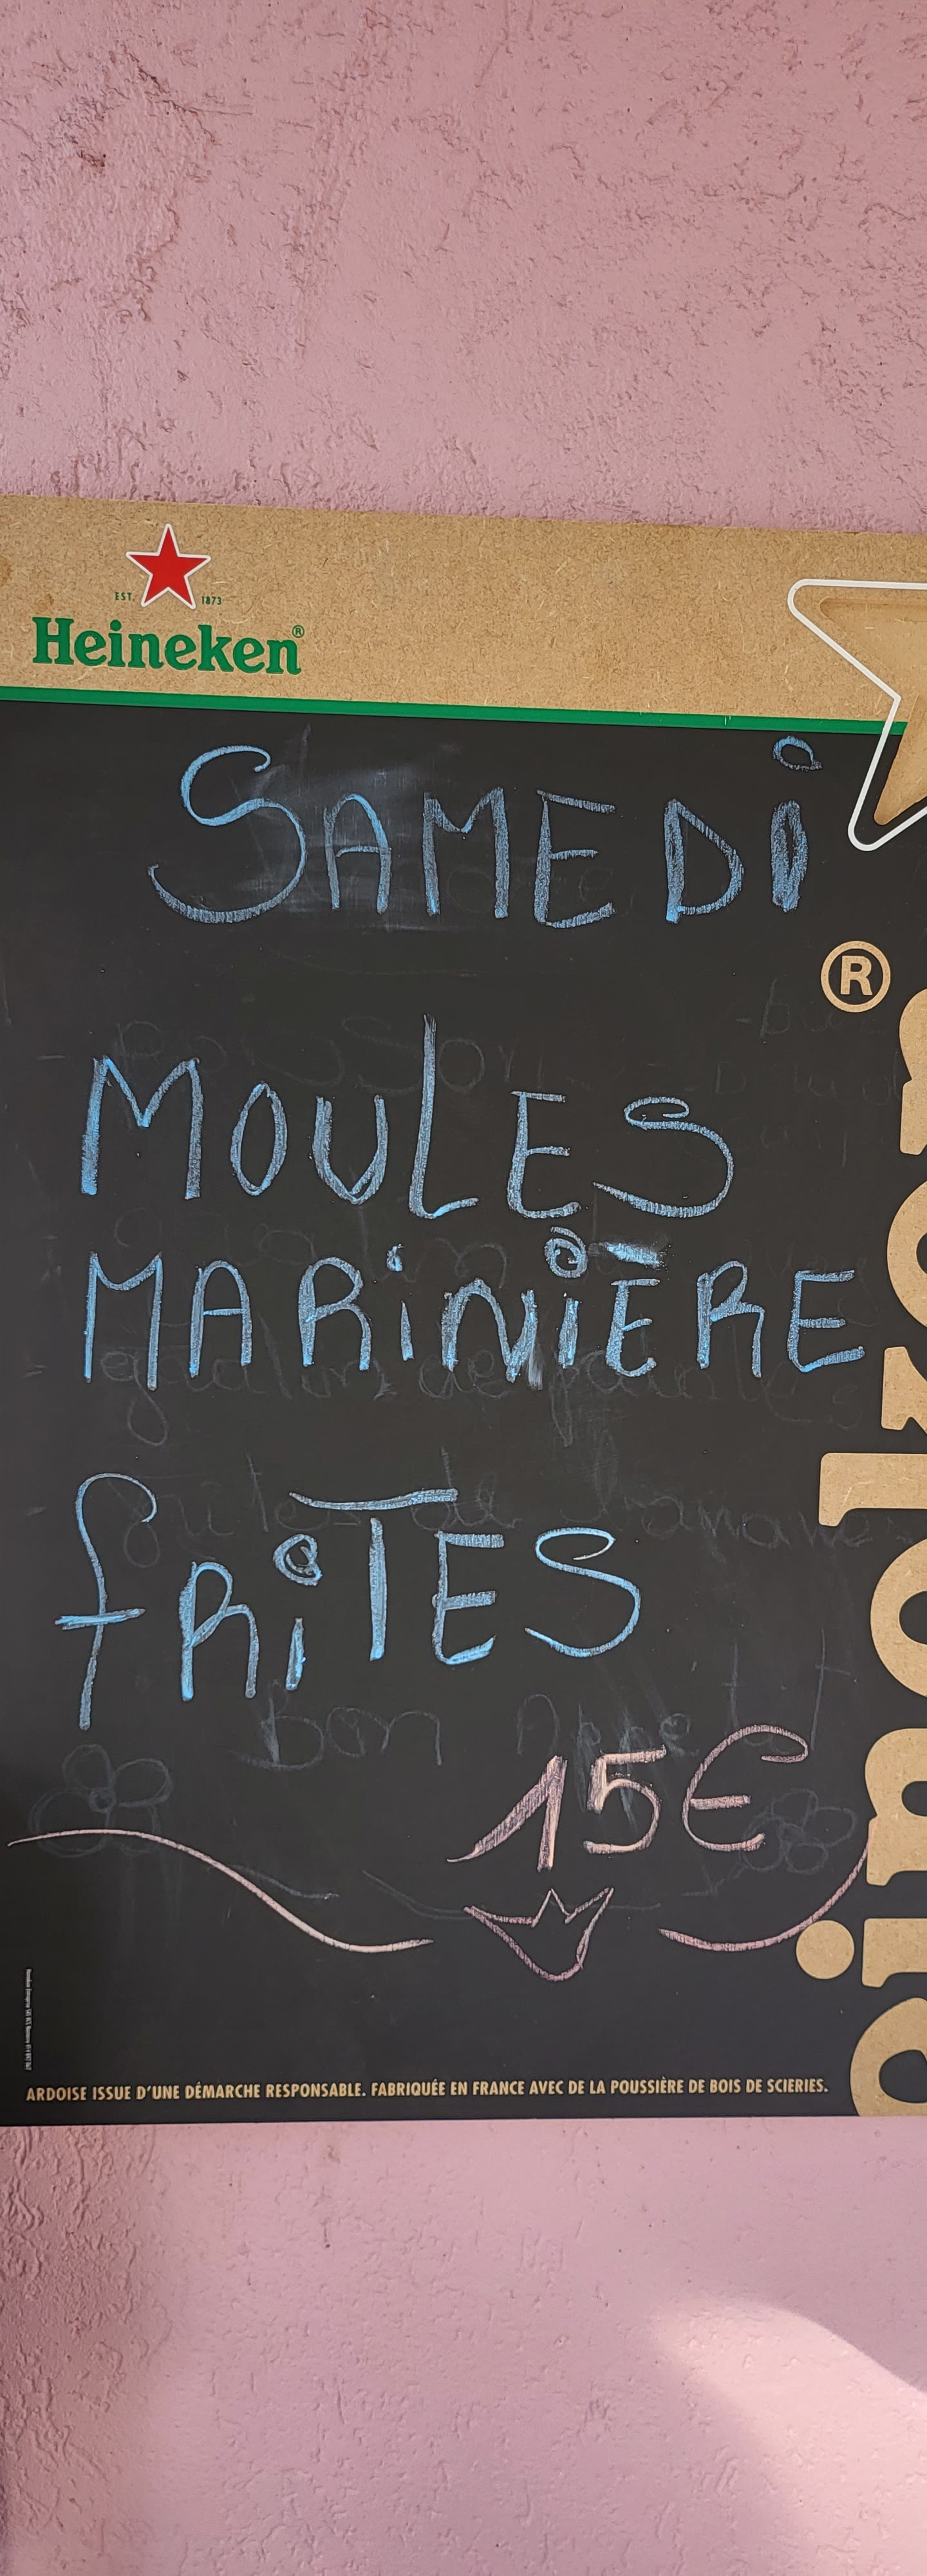 EST. 1873
Heineken®
SAMEDI
®
MOULES
MARINIÈRE
fRiTES
bon
15€
ARDOISE ISSUE D'UNE DÉMARCHE RESPONSABLE. FABRIQUÉE EN FRANCE AVEC DE LA POUSSIÈRE DE BOIS DE SCIERIES.